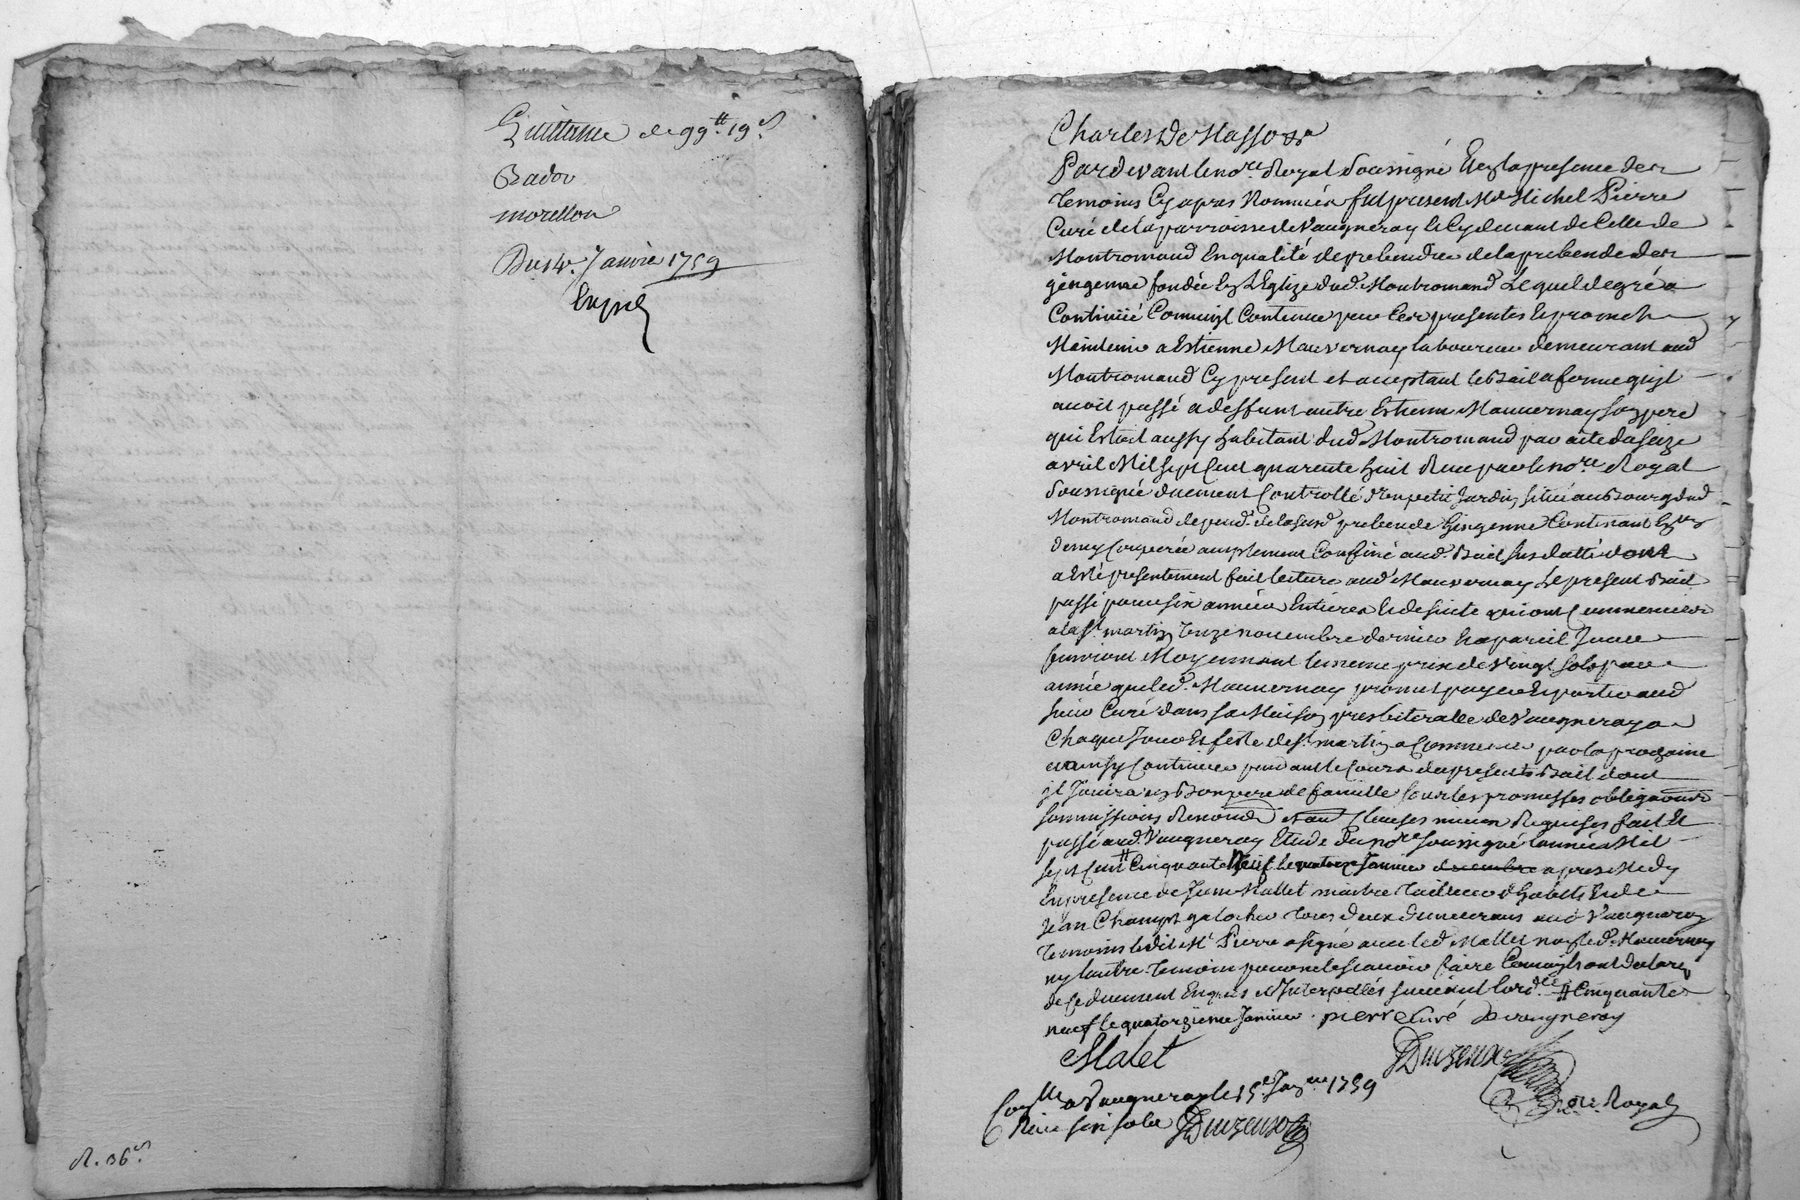 Quittance de 99 ₶ 19 s
Badou
morellon
Du 14e Janvier 1759
Exped
R. 36 s
Charles De Masso
Pardevant le nore Royal soussigné Et en la presence des
temoins Cy apres Nommés fut present Mre Michel Pierre
Curé de la parroisse de Vaugneray Et Cy devant de Celle de
Montromand En qualité de prebendier de la prebende des
gingenne fondée En L'Eglize dud Montromand Lequel de gré a
Continüé Comme il Continue par Ces presentes Et promet
Maintenir a Estienne Mauvernay laboureur demeurant aud
Montromand Cy present et acceptant le Bail a ferme qu'il
avoit passé a deffunt autre Estienne Mauvernay son pere
qui Estoit aussy habitant dud Montromand par acte du seize
avril Mil sept Cent quarente huit Receu par le nore Royal
soussigné duement Controllé d'un petit Jardin situé au Bourg dud
Montromand depend. de lasusd prebende Gingenne Contenant En
demy Couperée amplement Confiné aud. Bail susdatté dont
a Esté presentement fait lecture aud Mauvernay Le present Bail
passé pour six années Entieres Et de suite qui ont Commencées
a la st martin onze novembre dernier Et a pareil Jour
finiront Moyennant le meme prix de Vingt sols par
année que led. Mauvernay promet payer Et porter aud
sieur Curé dans sa Maison presbiteralle de Vaugneray a
Chaque Jour Et feste de st martin a Commencer par la prochaine
et ainsy Continuer pendant le Cours du present Bail dont
il Jouira en Bon pere de famille sous les promesses obligaons
soumissions Renonds Et aut Clauses mieux Requises fait Et
passé aud Vaugneray Etude du nore soussigné l'année Mil
sept Cent # Cinquante Neuf le quatorze Janvier decembre apres Midy
En presence de Jean Mallet maitre tailleur d'habits Et de
Jean Champt galocher tous deux demeurans aud Vaugneray
temoins ledit Mre Pierre a signé avec led Mallet non led. Mauvernay
ny l'autre temoin pour ne le scavoir faire Comme ils ont declaré
de ce duement Enquis Et Interpellés suivant l'ord.ce # Cinquante
neuf le quatorzieme Janvier. pierre Curé de vaugneray
Malet
nore Royal
Conlle a Vaugneray le 15e Janer 1759
Receu six sols